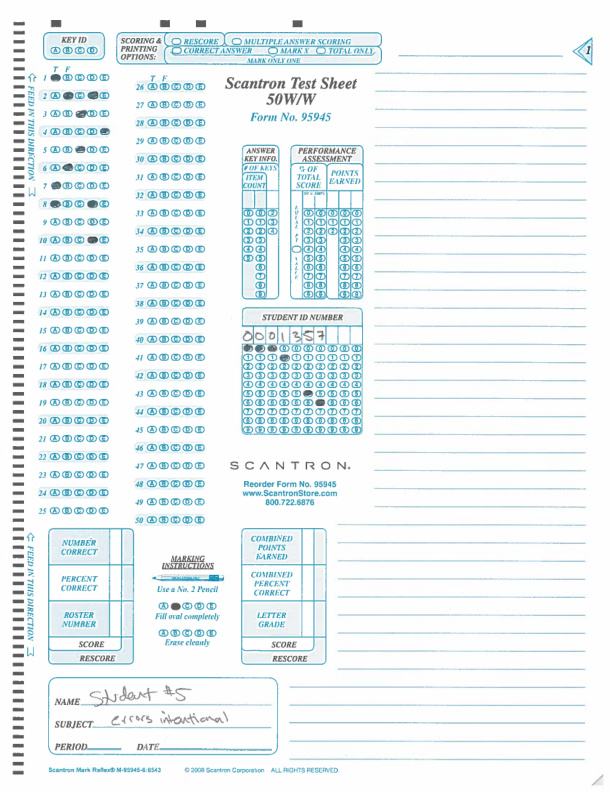 KEY ID
A B C D
SCORING & PRINTING OPTIONS:
RESCORE MULTIPLE ANSWER SCORING
CORRECT ANSWER MARK X TOTAL ONLY
MARK ONLY ONE
1
FEED IN THIS DIRECTION
T F
1 B C D E
2 A C E
3 A B D E
4 A B C D
5 A B D E
6 A C D E
7 B C D E
8 B C E
9 A B C D E
10 A B C E
11 A B C D E
12 A B C D E
13 A B C D E
14 A B C D E
15 A B C D E
16 A B C D E
17 A B C D E
18 A B C D E
19 A B C D E
20 A B C D E
21 A B C D E
22 A B C D E
23 A B C D E
24 A B C D E
25 A B C D E
T F
26 A B C D E
27 A B C D E
28 A B C D E
29 A B C D E
30 A B C D E
31 A B C D E
32 A B C D E
33 A B C D E
34 A B C D E
35 A B C D E
36 A B C D E
37 A B C D E
38 A B C D E
39 A B C D E
40 A B C D E
41 A B C D E
42 A B C D E
43 A B C D E
44 A B C D E
45 A B C D E
46 A B C D E
47 A B C D E
48 A B C D E
49 A B C D E
50 A B C D E
Scantron Test Sheet
50W/W
Form No. 95945
ANSWER KEY INFO.
# OF KEYS
ITEM COUNT
PERFORMANCE ASSESSMENT
% OF TOTAL SCORE
POINTS EARNED
STUDENT ID NUMBER
0001357
SCANTRON.
Reorder Form No. 95945
www.ScantronStore.com
800.722.6876
FEED IN THIS DIRECTION
NUMBER CORRECT
PERCENT CORRECT
ROSTER NUMBER
SCORE
RESCORE
MARKING INSTRUCTIONS
Use a No. 2 Pencil
A C D E
Fill oval completely
A B C D E
Erase cleanly
COMBINED POINTS EARNED
COMBINED PERCENT CORRECT
LETTER GRADE
SCORE
RESCORE
NAME Student #5
SUBJECT errors intentional
PERIOD DATE
Scantron Mark Reflex® M-95945-6:6543 © 2008 Scantron Corporation ALL RIGHTS RESERVED